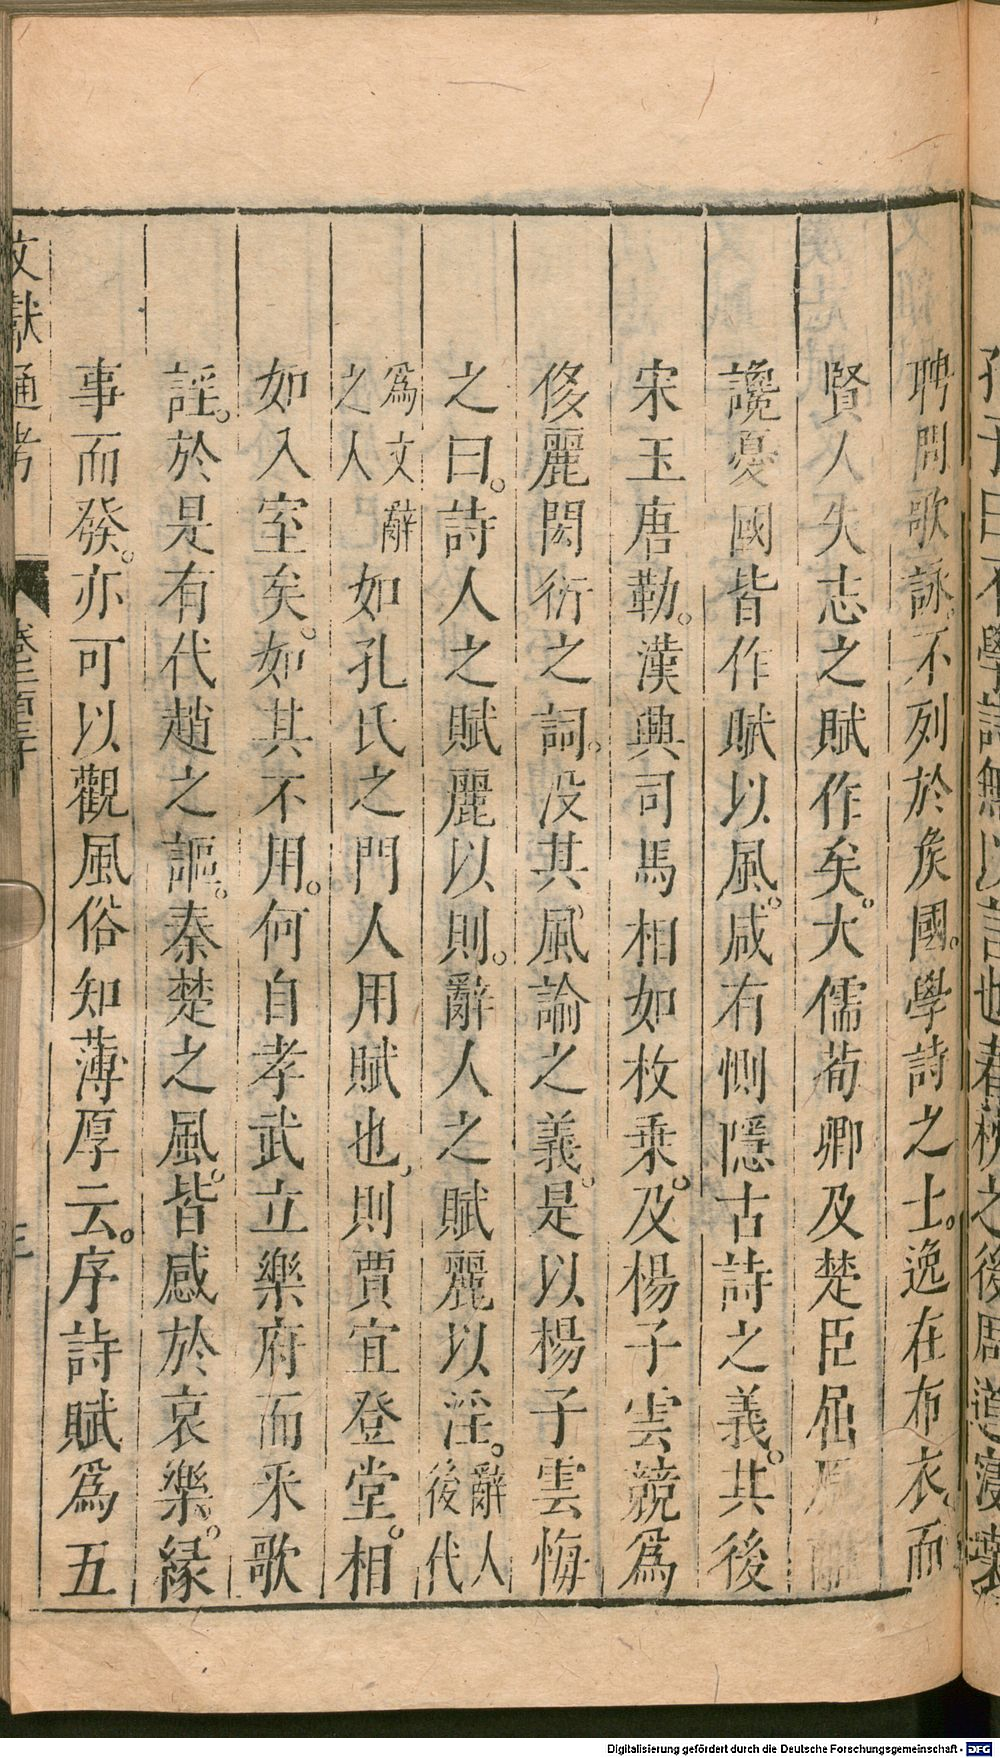 聘問歌詠。不列於矦國。學詩之士。逸在布衣。而
賢人失志之賦作矣。大儒荀卿及楚臣屈原離
讒憂國皆作賦以風。咸有惻隱古詩之義。其後
宋玉唐勒。漢興司馬相如枚乗。及楊子雲競爲
侈麗閎衍之詞。没其風諭之義。是以楊子雲悔
之曰。詩人之賦麗以則。辭人之賦麗以淫。辭人後代
爲文辭之人如孔氏之門人用賦也，則賈宜登堂。相
如入室矣。如其不用。何自孝武立樂府而采歌
謡。於是有代趙之謳。秦楚之風。皆感於哀樂。緣
事而發。亦可以觀風俗知薄厚云。序詩賦爲五
文獻通考
三
Digitalisierung gefördert durch die Deutsche Forschungsgemeinschaft - DFG